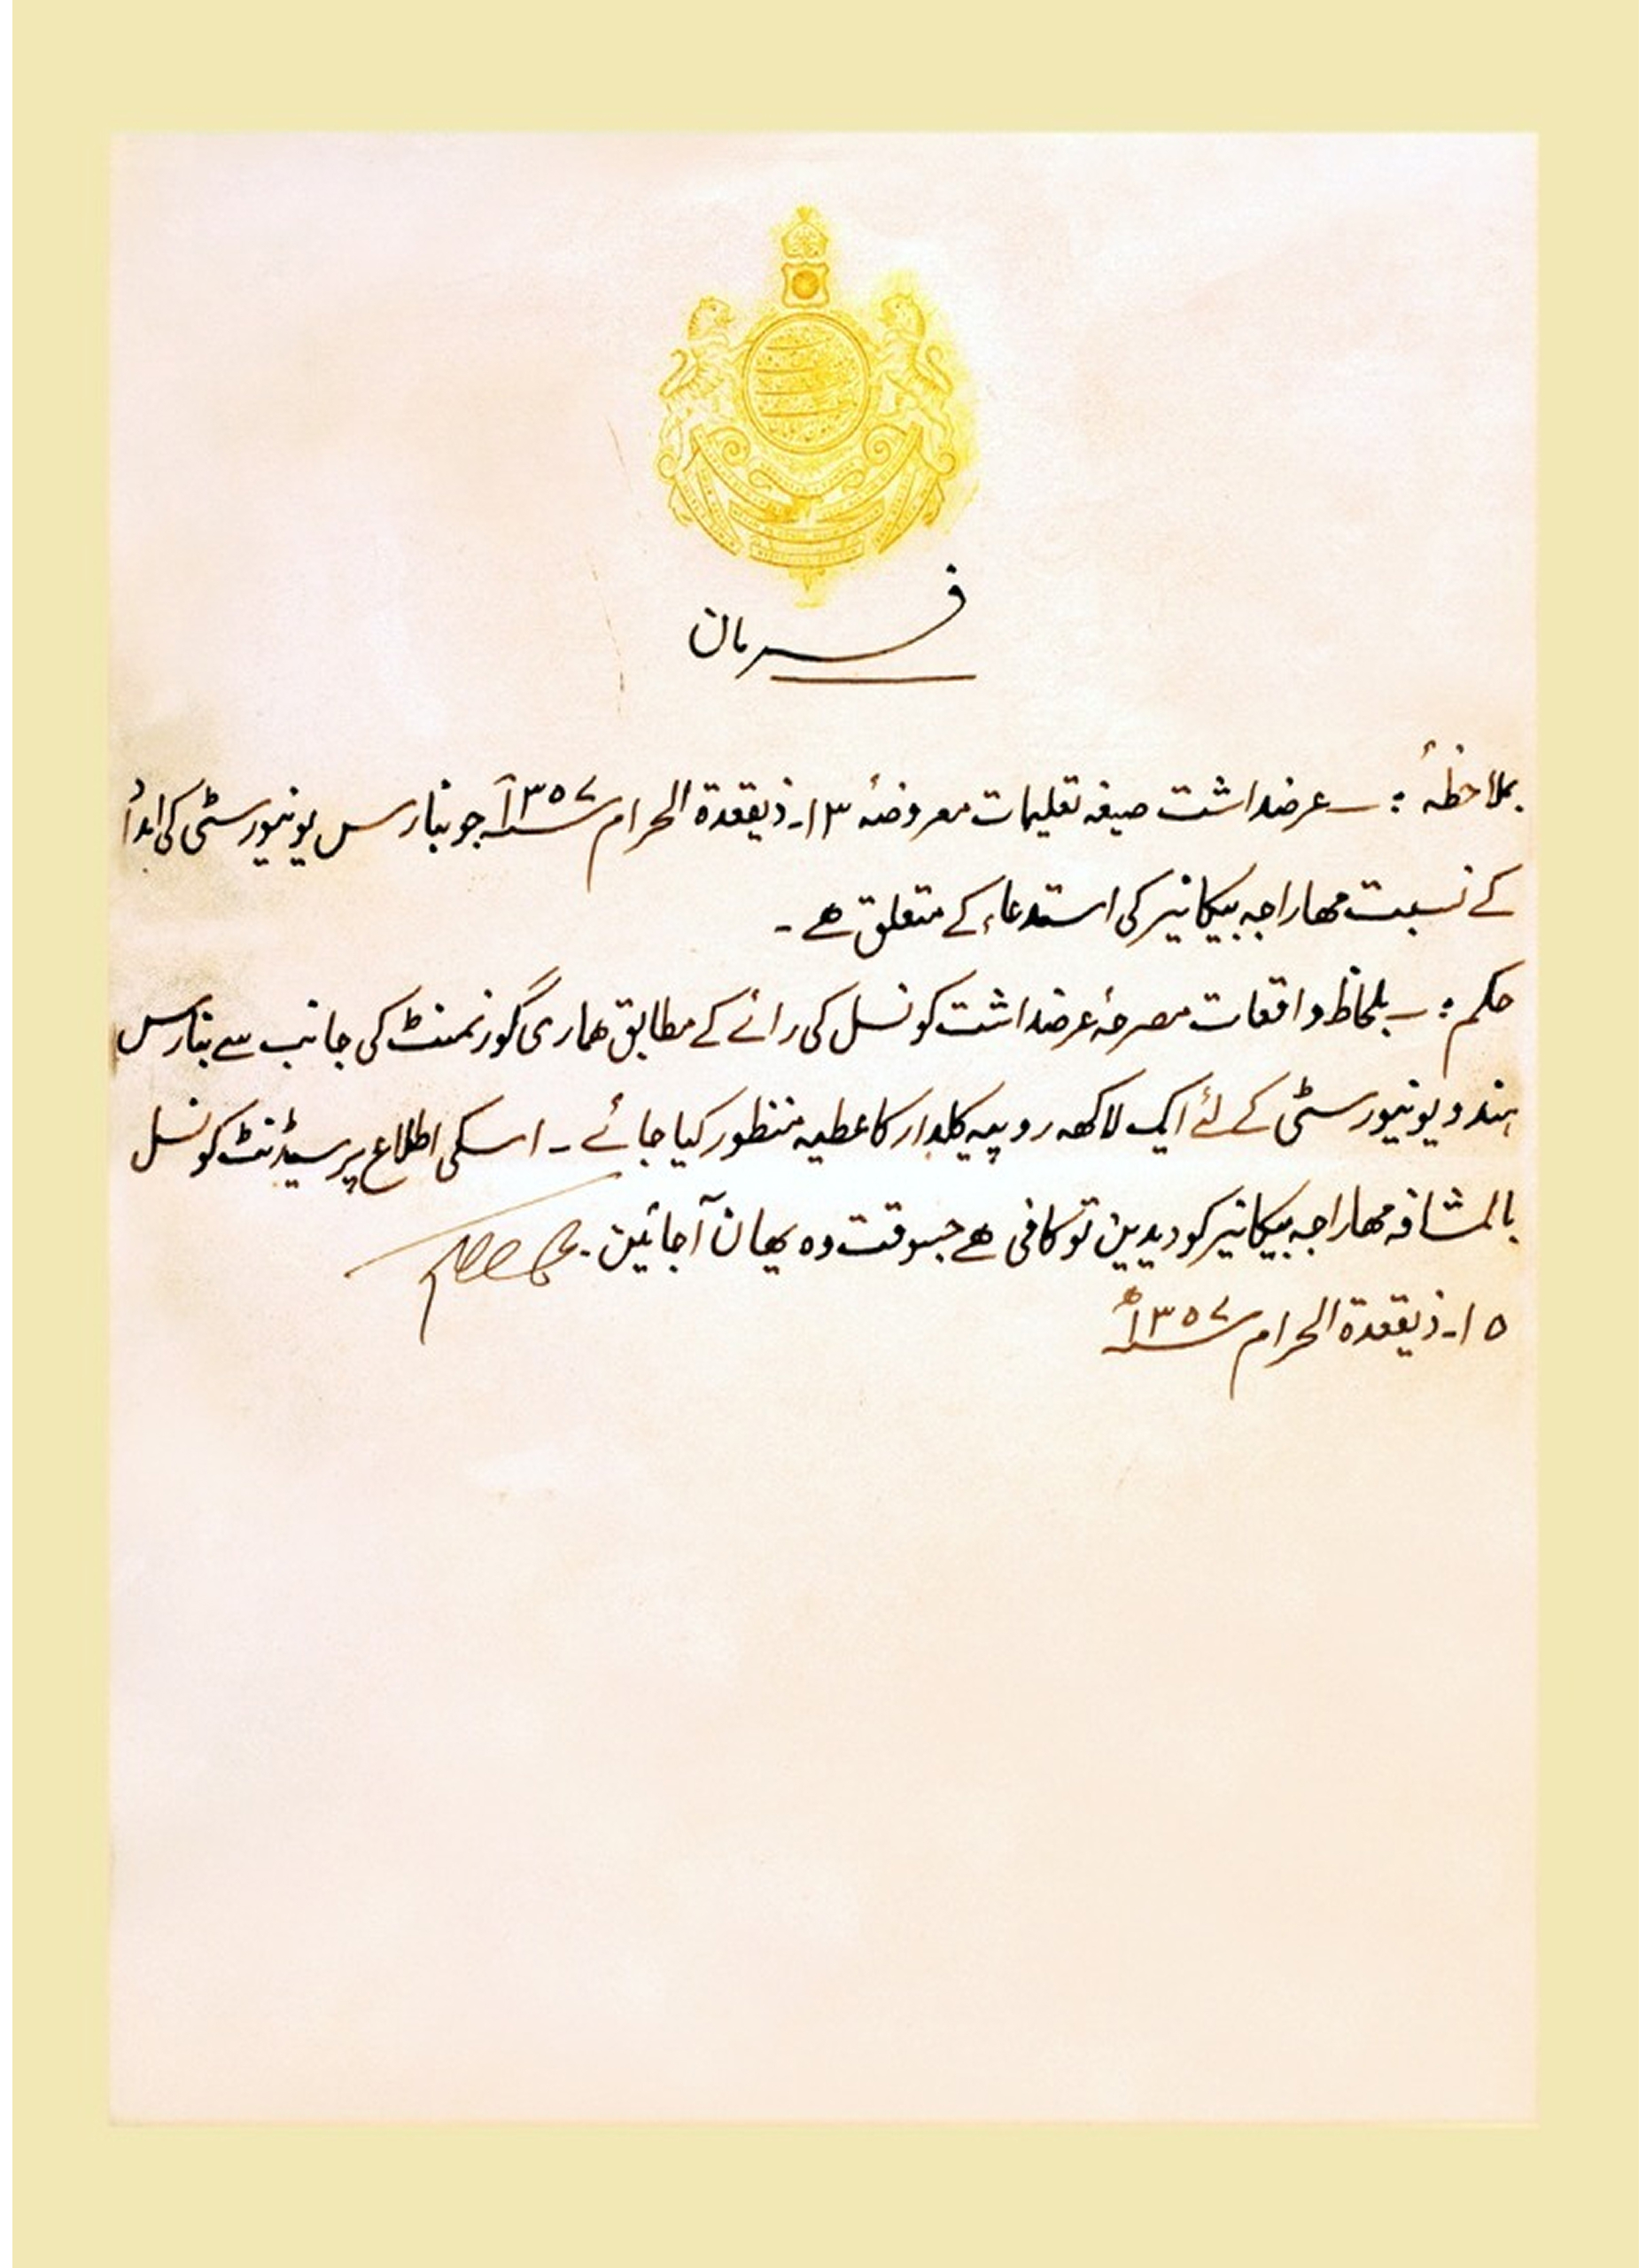 فرمان
بملاحظۂ :۔ عرضداشت صیغہ تعلیمات معروضۂ ۱۳۔ ذیقعدۃ الحرام ۱۳۵۷ھ جو بنارس یونیورسٹی کی امداد
کے نسبت مھاراجہ بیکانیر کی استدعاء کے متعلق ھے ۔
حکم :۔ بلحاظ واقعات مصرحۂ عرضداشت کونسل کی رائے کے مطابق ھماری گورنمنٹ کی جانب سے بنارس
ہندو یونیورسٹی کے لئے ایک لاکھہ روپیہ کلدار کا عطیہ منظور کیا جائے ۔ اسکی اطلاع پرسیڈنٹ کونسل
بالمشافہ مھاراجہ بیکانیر کو دیدین تو کافی ھے جسوقت وہ یھان آجائین ۔
۱۵۔ ذیقعدۃ الحرام ۱۳۵۷ھ